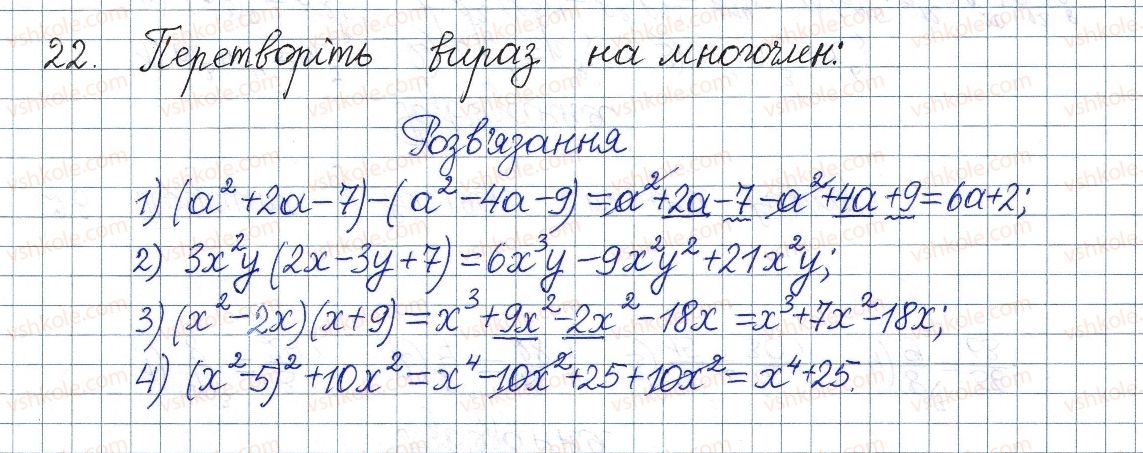 22. Перетворіть вираз на многочлен:
Розв'язання
1) (a² + 2a - 7) - (a² - 4a - 9) = a² + 2a - 7 - a² + 4a + 9 = 6a + 2;
2) 3x²y (2x - 3y + 7) = 6x³y - 9x²y² + 21x²y;
3) (x² - 2x)(x + 9) = x³ + 9x² - 2x² - 18x = x³ + 7x² - 18x;
4) (x² - 5)² + 10x² = x⁴ - 10x² + 25 + 10x² = x⁴ + 25.